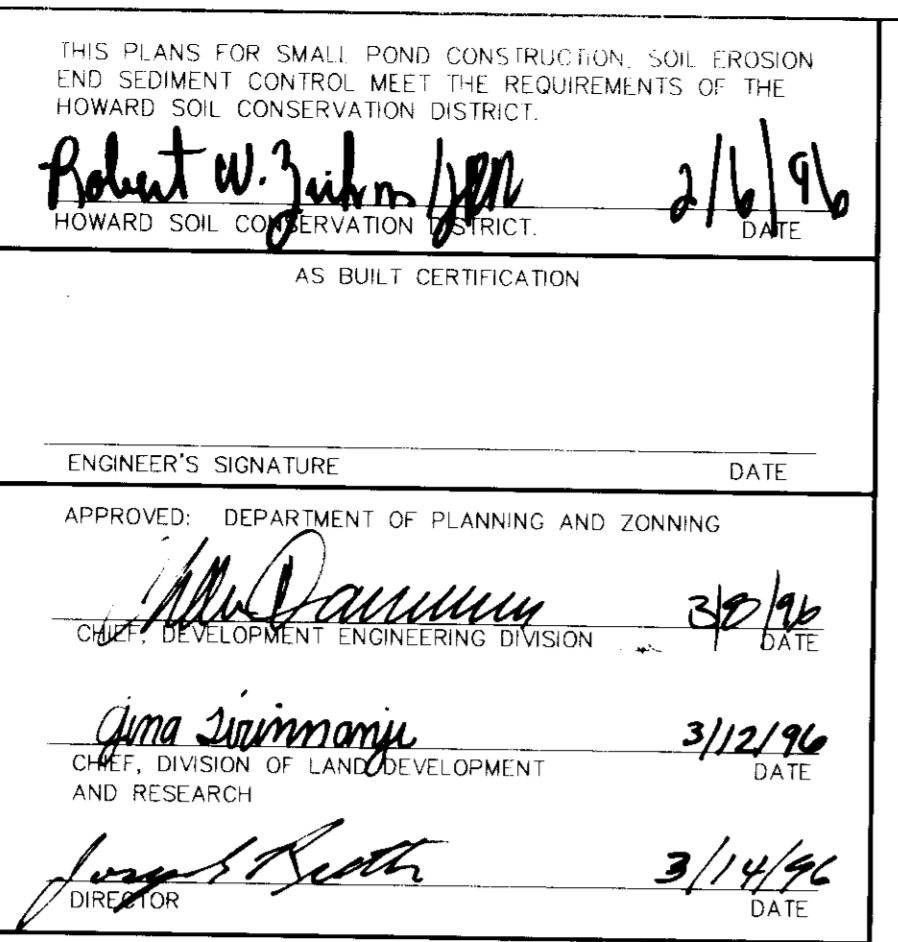 THIS PLANS FOR SMALL POND CONSTRUCTION, SOIL EROSION
END SEDIMENT CONTROL MEET THE REQUIREMENTS OF THE
HOWARD SOIL CONSERVATION DISTRICT.
Robert W. 2/6/96
HOWARD SOIL CONSERVATION DISTRICT. DATE
AS BUILT CERTIFICATION
ENGINEER'S SIGNATURE DATE
APPROVED: DEPARTMENT OF PLANNING AND ZONNING
3/8/96
CHIEF, DEVELOPMENT ENGINEERING DIVISION DATE
Gina 3/12/96
CHIEF, DIVISION OF LAND DEVELOPMENT DATE
AND RESEARCH
Joseph 3/14/96
DIRECTOR DATE